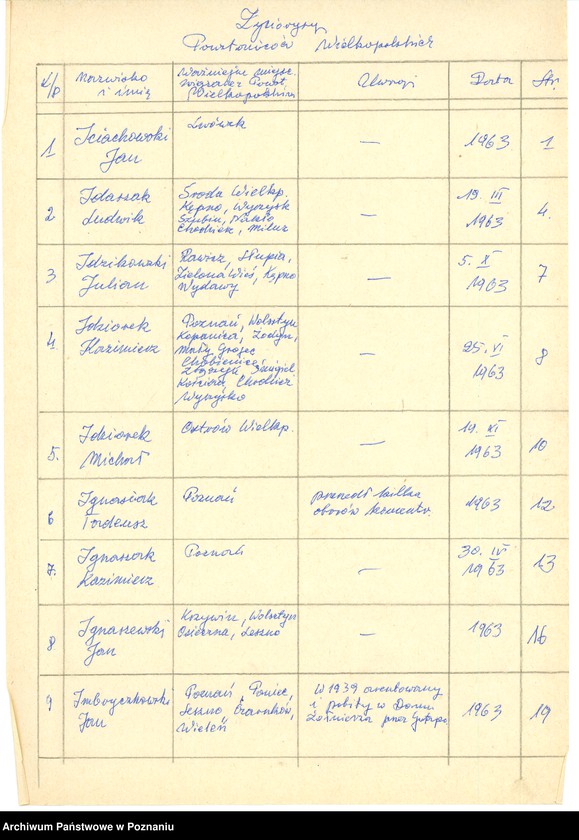 Życiorysy
Powstańców Wielkopolskich
L/p
Nazwisko
i imię
Ważniejsze miejsc.
związane z Powst.
Wielkopolskim
Uwagi
Data
Str.
1
Iciachowski
Jan
Lwówek
—
1963
1
2
Idaszak
Ludwik
Środa Wielkp.
Kępno, Wyrzysk
Szubin, Nakło
Chodzież,
—
19. III
1963
4.
3
Idzikowski
Julian
Rawicz, Słupia,
Zielona Wieś, Kępno
Wydawy
—
5. X
1963
7
4.
Idziorek
Kazimierz
Poznań, Wolsztyn
Kopanica,
Mały Grójec
Chobienice
Zbąszyń, Śmigiel
Kościan, Chodzież
Wyrzysko
—
25. VI
1963
8
5.
Idziorek
Michał
Ostrów Wielkp.
—
19. XI
1963
10
6
Ignasiak
Tadeusz
Poznań
przeszedł kilka
obozów
1963
12
7.
Ignaszak
Kazimierz
Poznań
—
30. IV
1963
13
8
Ignaszewski
Jan
Krzywiń, Wolsztyn
Osieczna, Leszno
—
1963
16
9
Imbryczkowski
Jan
Poznań, Poniec,
Leszno Czarnków,
Wieleń
W 1939 aresztowany
i pobity w Domu
Żołnierza przez Gestapo
1963
19
Archiwum Państwowe w Poznaniu